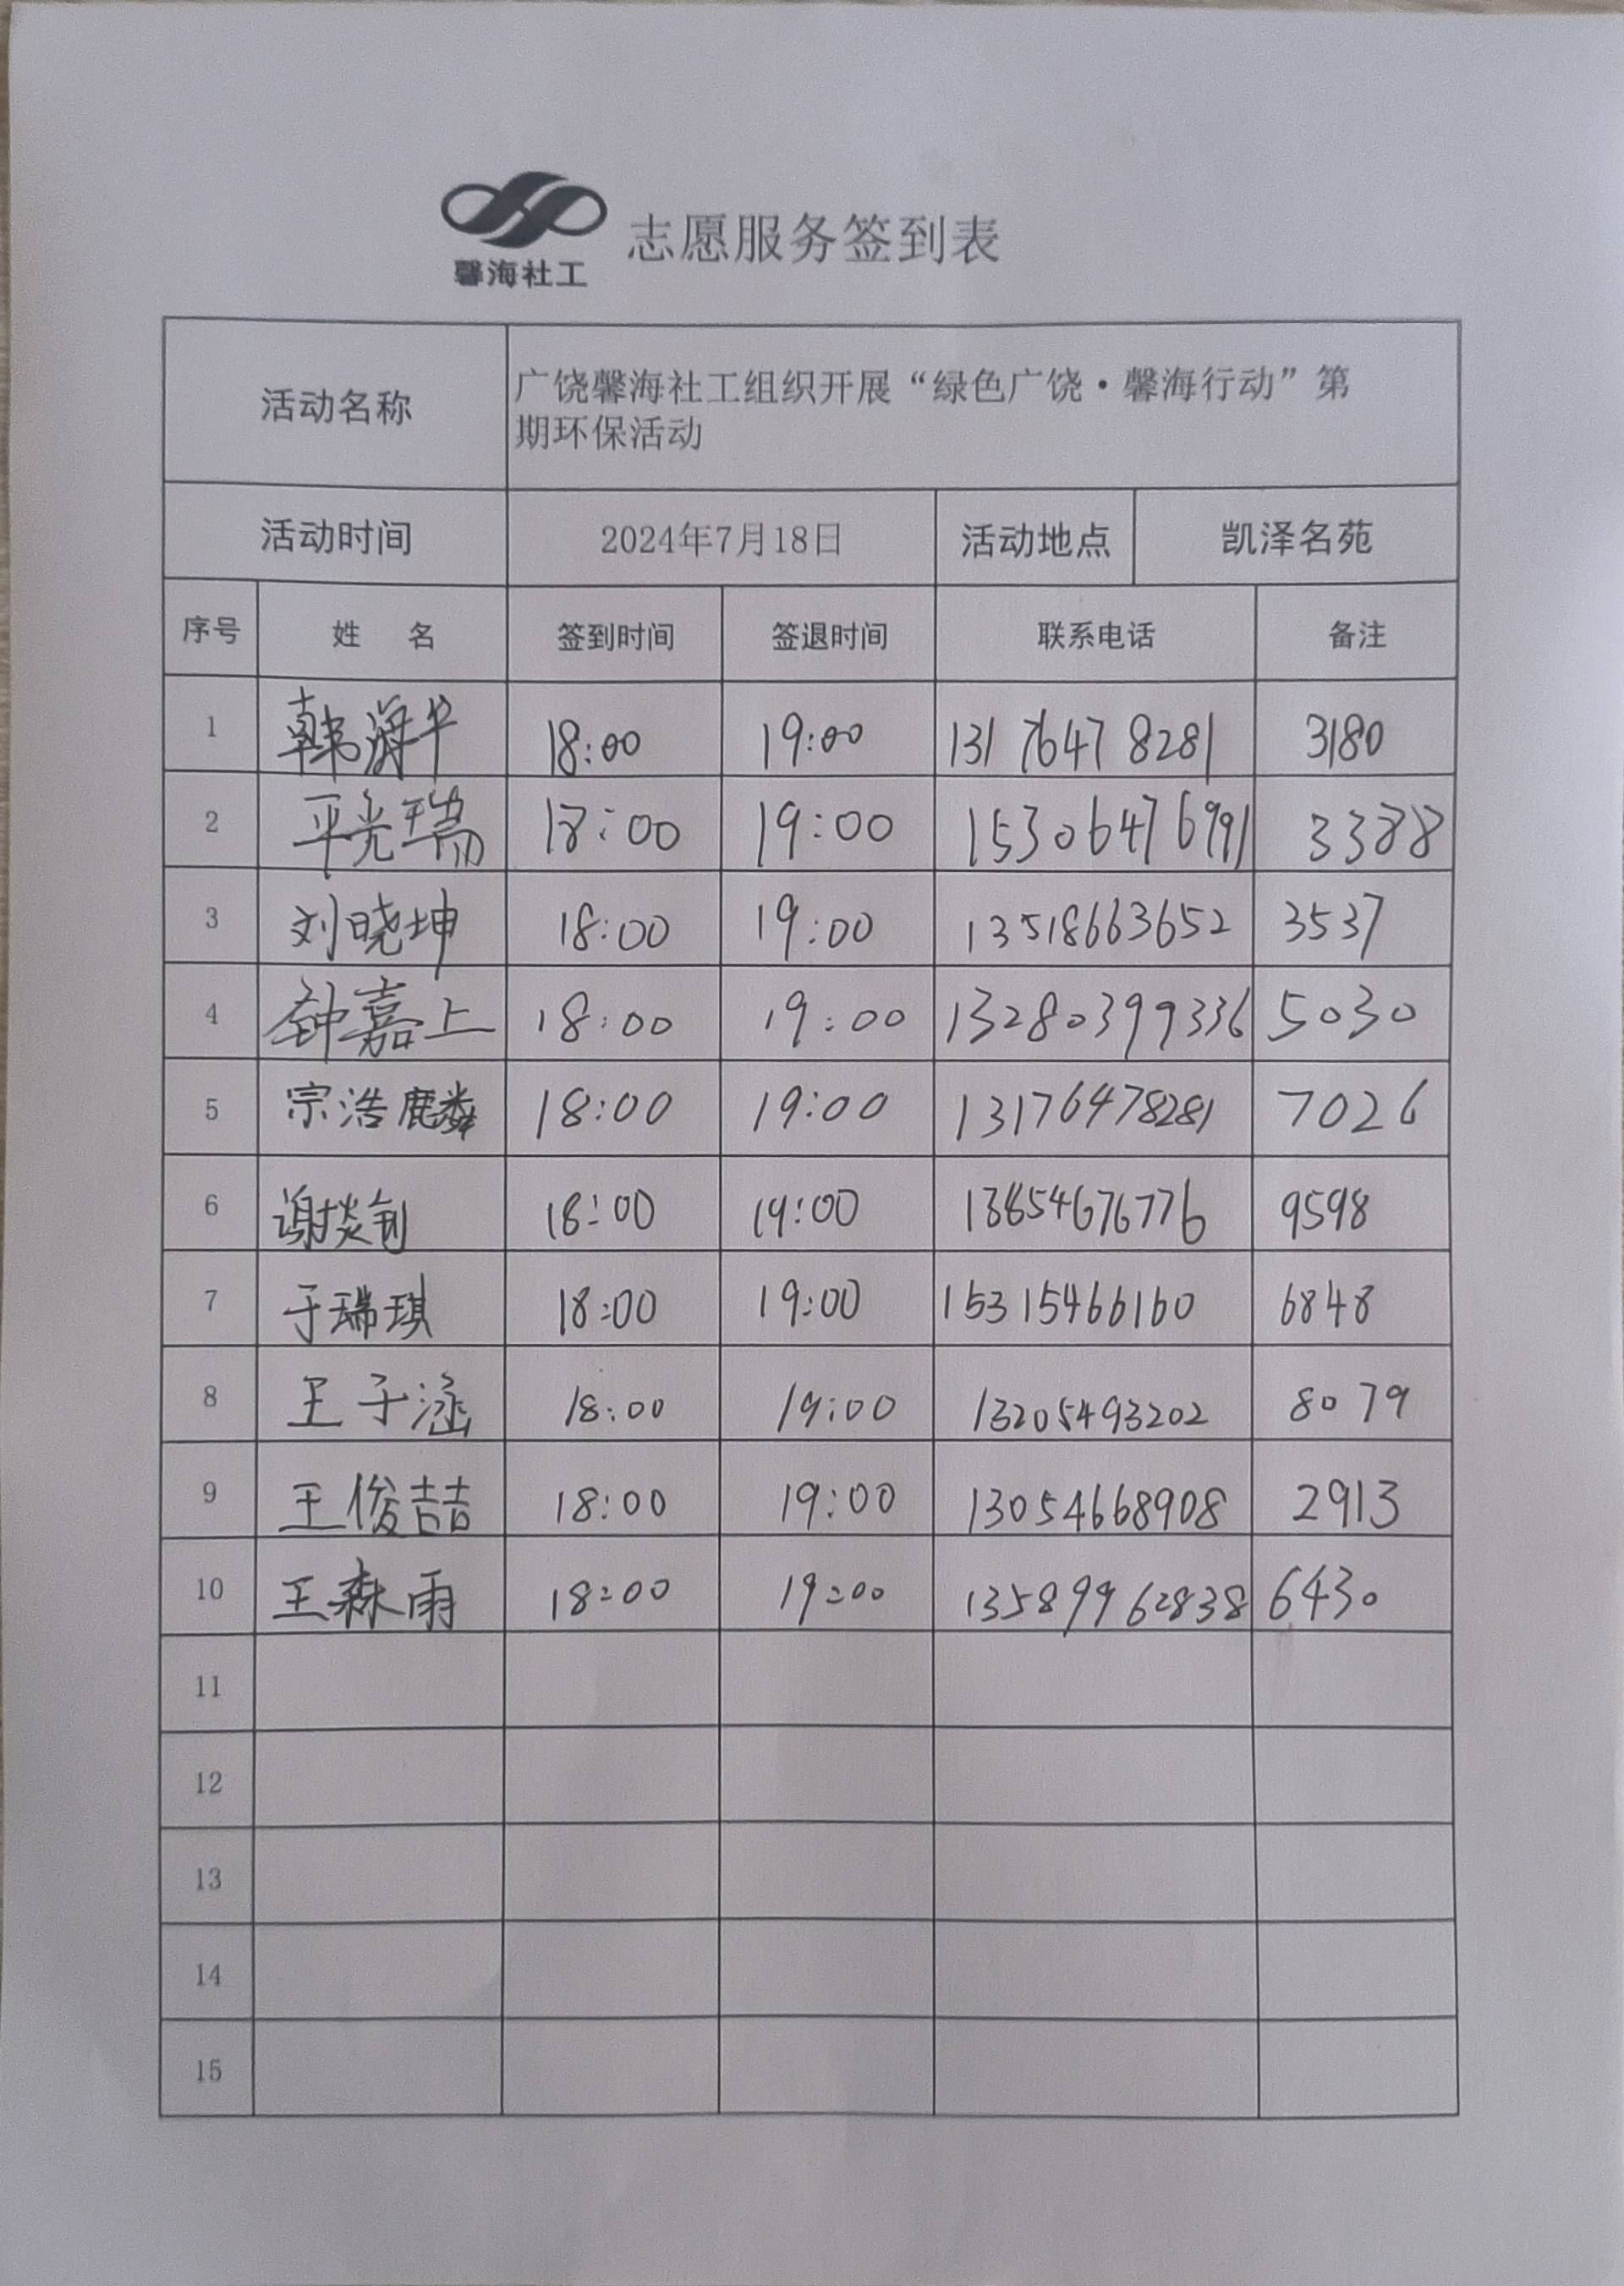 馨海社工
志愿服务签到表
活动名称 广饶馨海社工组织开展“绿色广饶·馨海行动”第
期环保活动
活动时间 2024年7月18日 活动地点 凯泽名苑
序号 姓 名 签到时间 签退时间 联系电话 备注
1 韩 18:00 19:00 13176478281 3180
2 平光瑞 18:00 19:00 15306476991 3388
3 刘晓坤 18:00 19:00 13518663652 3537
4 钟嘉上 18:00 19:00 13280399336 5030
5 宗浩麟 18:00 19:00 13176478281 7026
6 18:00 19:00 13854676776 9598
7 于瑞琪 18:00 19:00 15315466160 6848
8 王子涵 18:00 19:00 13205493202 8079
9 王俊喆 18:00 19:00 13054668908 2913
10 王森雨 18:00 19:00 13589962838 6430
11
12
13
14
15